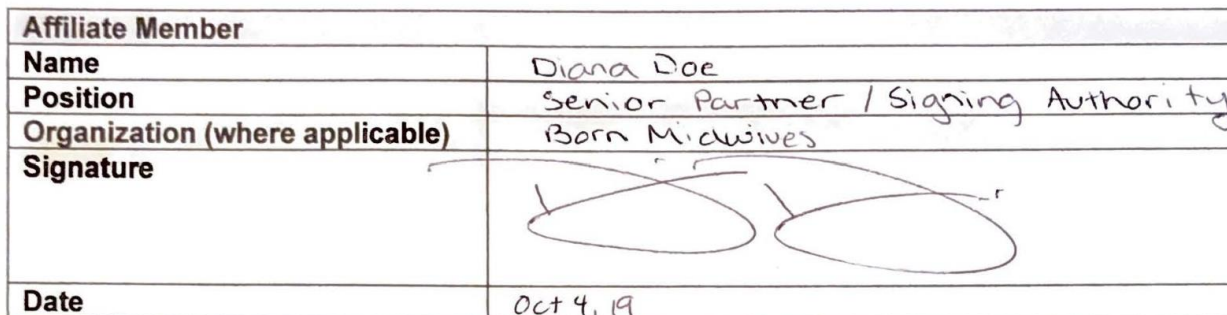 Affiliate Member
Name Diana Doe
Position Senior Partner / Signing Authority
Organization (where applicable) Born Midwives
Signature
Date Oct 4, 19